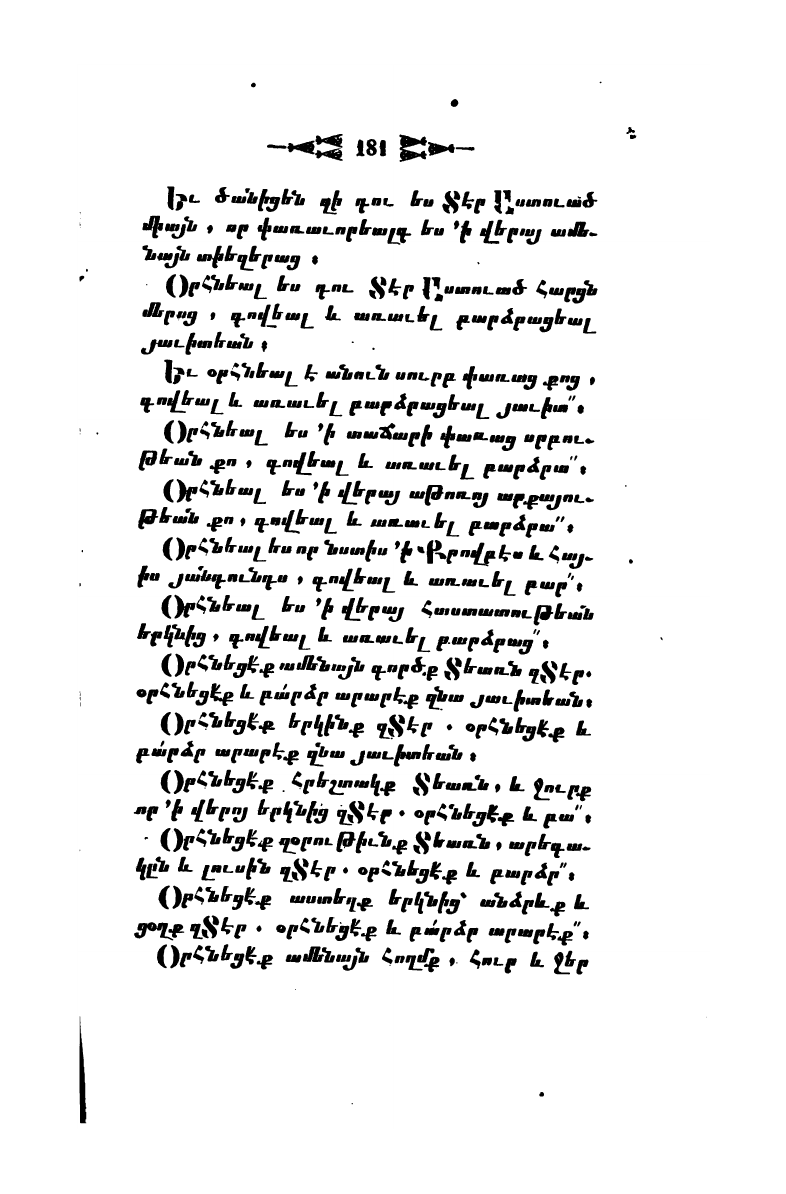 181
Եւ ծանիցեն զի դու ես Տէր Աստուած
միայն, որ փառաւորեալդ ես ՚ի վերայ ամե-
նայն տիեզերաց ։
Օրհնեալ ես դու Տէր Աստուած հարցն
մերոց , գովեալ և առաւել բարձրացեալ
յաւիտեան ։
Եւ օրհնեալ է անուն սուրբ փառաց քոց ,
գովեալ և առաւել բարձրացեալ յաւիտ՛՛։
Օրհնեալ ես ՚ի տաճարի փառաց սրբու-
թեան քո , գովեալ և առաւել բարձրա՛՛։
Օրհնեալ ես ՚ի վերայ աթոռոյ արքայու-
թեան քո , գովեալ և առաւել բարձրա՛՛։
Օրհնեալ ես որ նստիս ՚ի Քրովբէս և հայ-
իս յանդունդս , գովեալ և առաւել բար՛՛։
Օրհնեալ ես ՚ի վերայ հաստատութեան
երկնից , գովեալ և առաւել բարձրաց՛՛։
Օրհնեցէ՛ք ամենայն գործք Տեառն զՏէր.
օրհնեցէ՛ք և բա՛րձր արարէք զնա յաւիտեան։
Օրհնեցէ՛ք երկինք զՏէր . օրհնեցէ՛ք և
բա՛րձր արարէք զնա յաւիտեան ։
Օրհնեցէ՛ք հրեշտակք Տեառն, և ջուրք
որ ՚ի վերոյ երկնից զՏէր . օրհնեցէ՛ք և բա՛՛։
Օրհնեցէ՛ք զօրութիւնք Տեառն, արեգա-
կըն և լուսին զՏէր . օրհնեցէ՛ք և բարձր՛՛։
Օրհնեցէ՛ք աստեղք երկնից՝ անձրևք և
ցօղք զՏէր . օրհնեցէ՛ք և բա՛րձր արարէք՛՛։
Օրհնեցէ՛ք ամենայն հողմք , հուր և ջեր